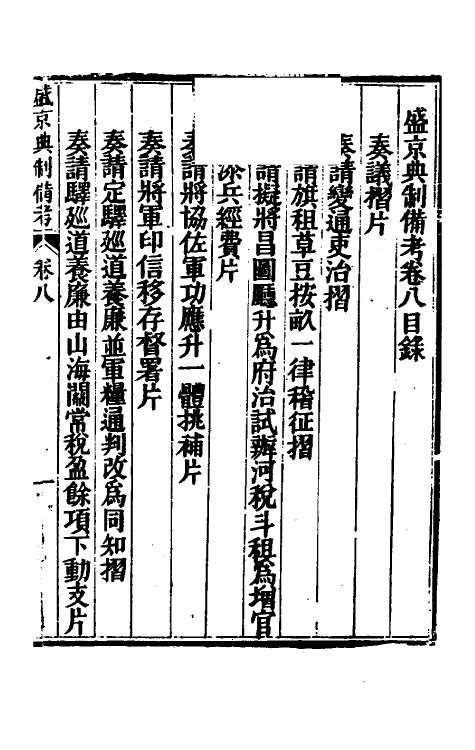 盛京典制備考卷八目錄
奏議摺片
奏請變通吏治摺
請旗租草豆按畝一律稽征摺
請擬將昌圖廳升為府治試辦河稅斗租為增官
添兵經費片
奏請將協佐軍功應升一體挑補片
奏請將軍印信移存督署片
奏請定驛巡道養廉並軍糧通判改為同知摺
奏請驛巡道養廉由山海關常稅盈餘項下動支片
盛京典制備考 卷八 一